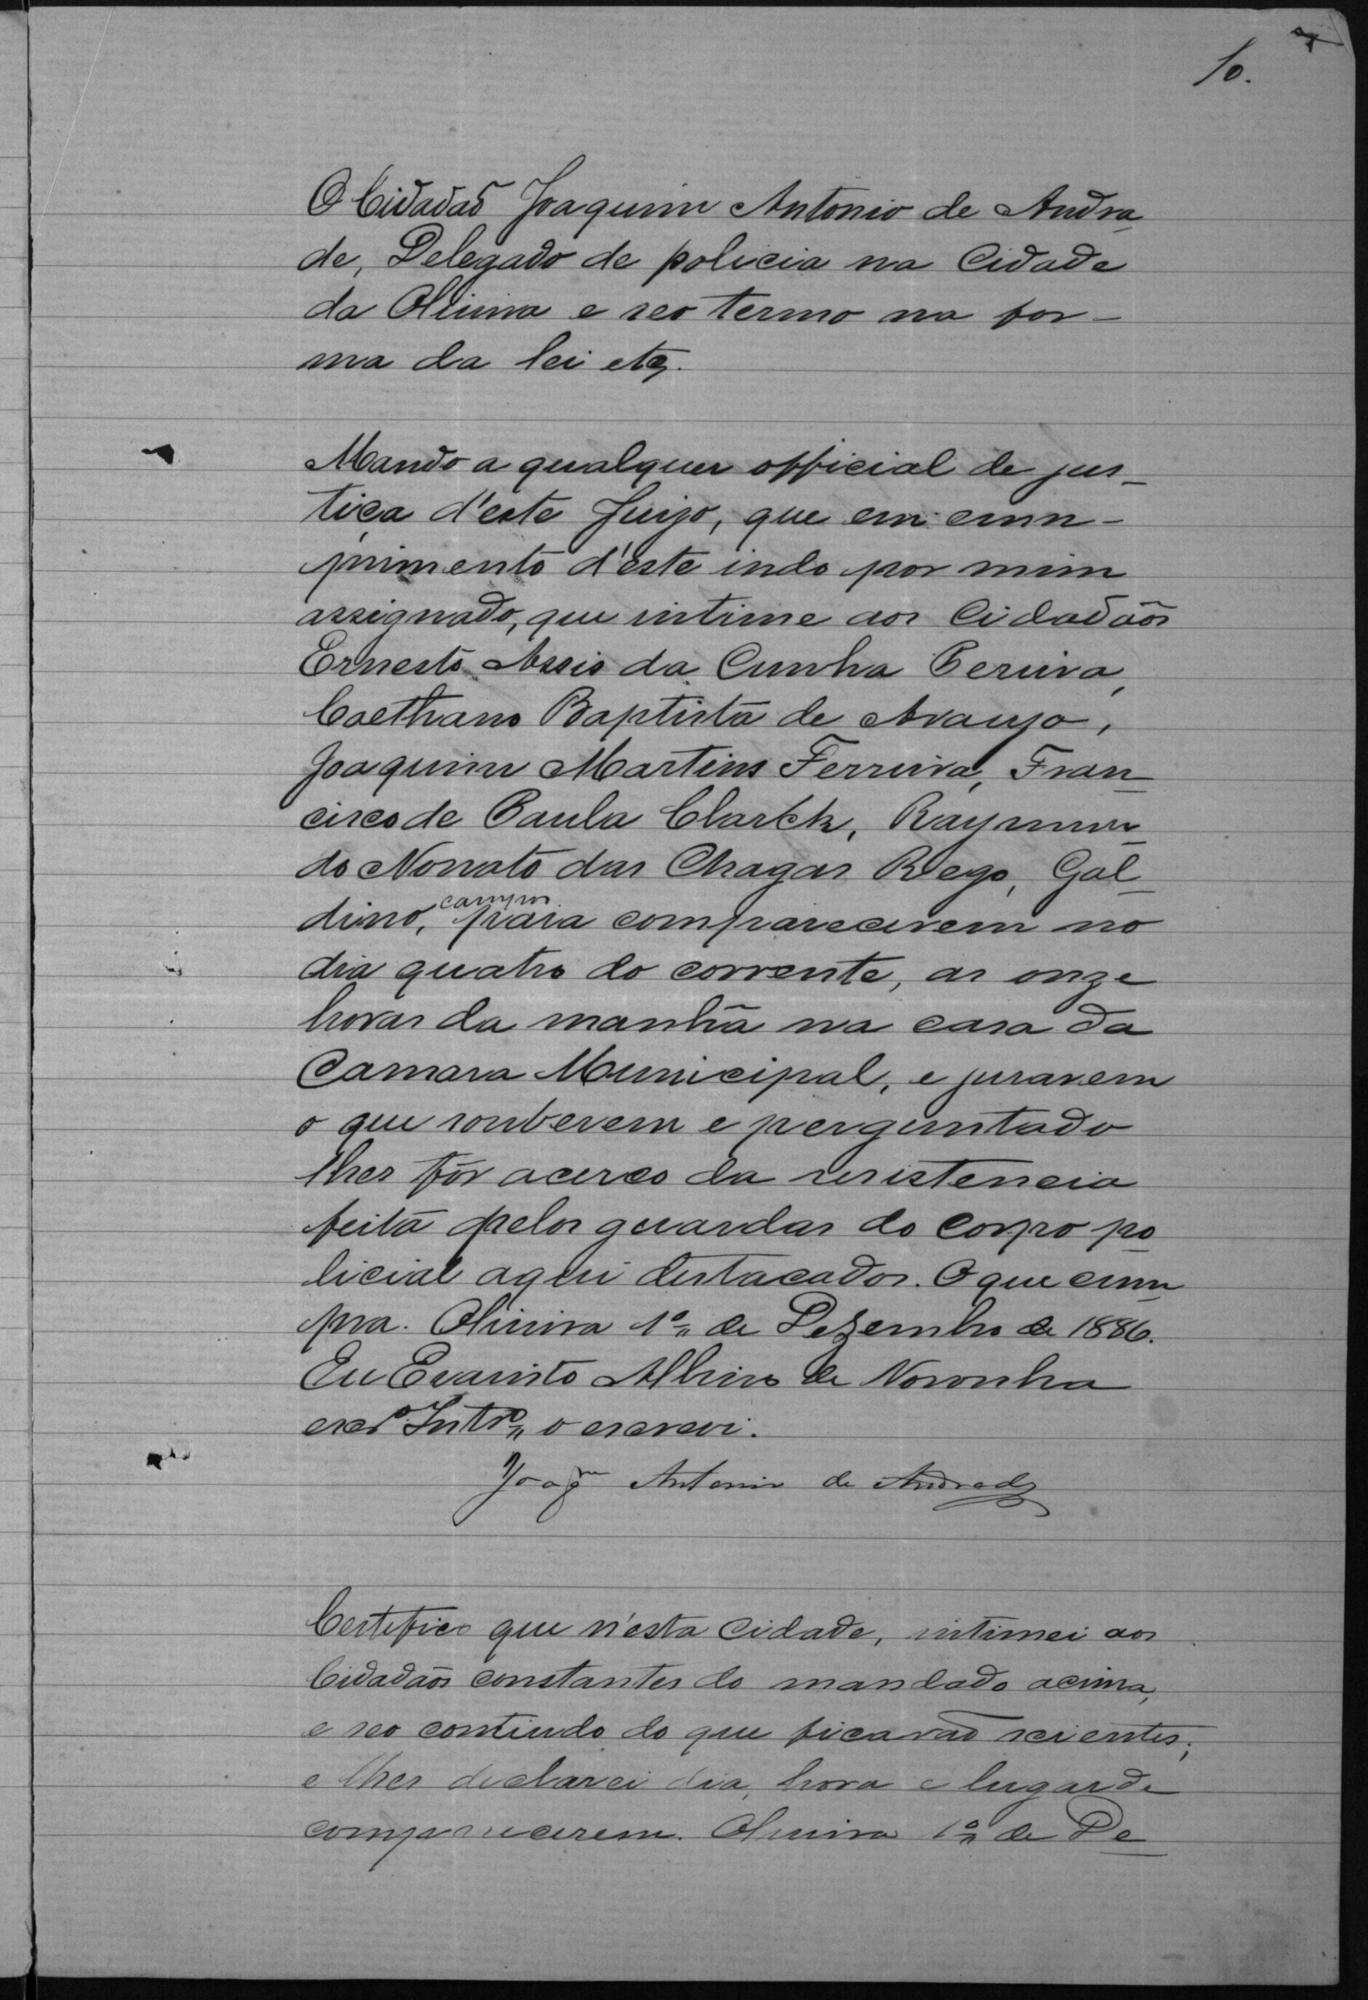 10.
O Cidadaõ Joaquim Antonio de Andra
de, Delegado de policia na Cidade
da Oliveira e seo termo na for-
ma da lei etc.
Mando a qualquer official de jus-
tiça d'este Juizo, que em cum-
primento d'este indo por mim
assignado, que intime aos Cidadãos
Ernesto Assis da Cunha Pereira,
Caethano Baptista de Araujo,
Joaquim Martins Ferreira, Fran-
cisco de Paula Clarck, Raymun
do Nonato das Chagas Rego, Gal-
dino, campos para comparecerem no
dia quatro do corrente, as onze
horas da manhã na casa da
Camara Municipal, e jurarem
o que souberem e perguntado
lhes fôr acerca da resistencia
feita pelos guardas do corpo po
licial aqui destacados. O que cum
pra. Oliveira 1º de Dezembro de 1886.
Eu Evaristo Albino de Noronha
escr.º Intrº o escrevi.
Joaqm Antonio de Andrade
Certifico que n'esta Cidade, intimei aos
Cidadãos constantes do mandado acima,
e seo contiudo do que ficaraõ scientes;
e lhes declarei dia, hora e lugar de
comparecerem. Oliveira 1º de De